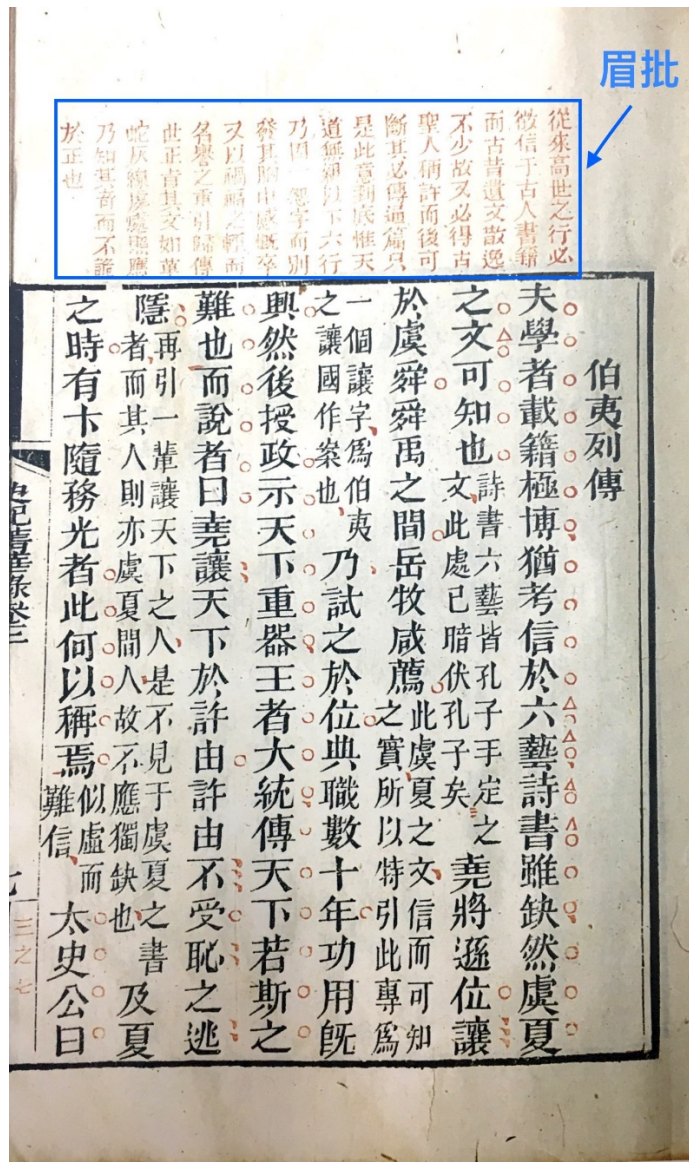 眉批
從來高世之行必
徵信于古人書籍
而古昔遺文散逸
不少故又必得古
聖人稱許而後可
斷其必傳通篇只
是此意到底惟天
道無親以下六行
乃因一怨字而別
發其胸中感慨卒
又以禍福之輕而
名譽之重引歸傳
世正旨其文如草
蛇灰線處處照應
乃知其奇而不詭
於正也
伯夷列傳
夫學者載籍極博猶考信於六藝詩書雖缺然虞夏
之文可知也詩書六藝皆孔子手定之文此處已暗伏孔子矣堯將遜位讓
於虞舜舜禹之間岳牧咸薦此虞夏之文信而可知之實所以特引此專爲
一個讓字爲伯夷之讓國作案也乃試之於位典職數十年功用旣
興然後授政示天下重器王者大統傳天下若斯之
難也而說者曰堯讓天下於許由許由不受恥之逃
隱再引一輩讓天下之人是不見于虞夏之書者而其人則亦虞夏間人故不應獨缺也及夏
之時有卞隨務光者此何以稱焉似虛而難信太史公曰
史記菁華錄卷三
三之七